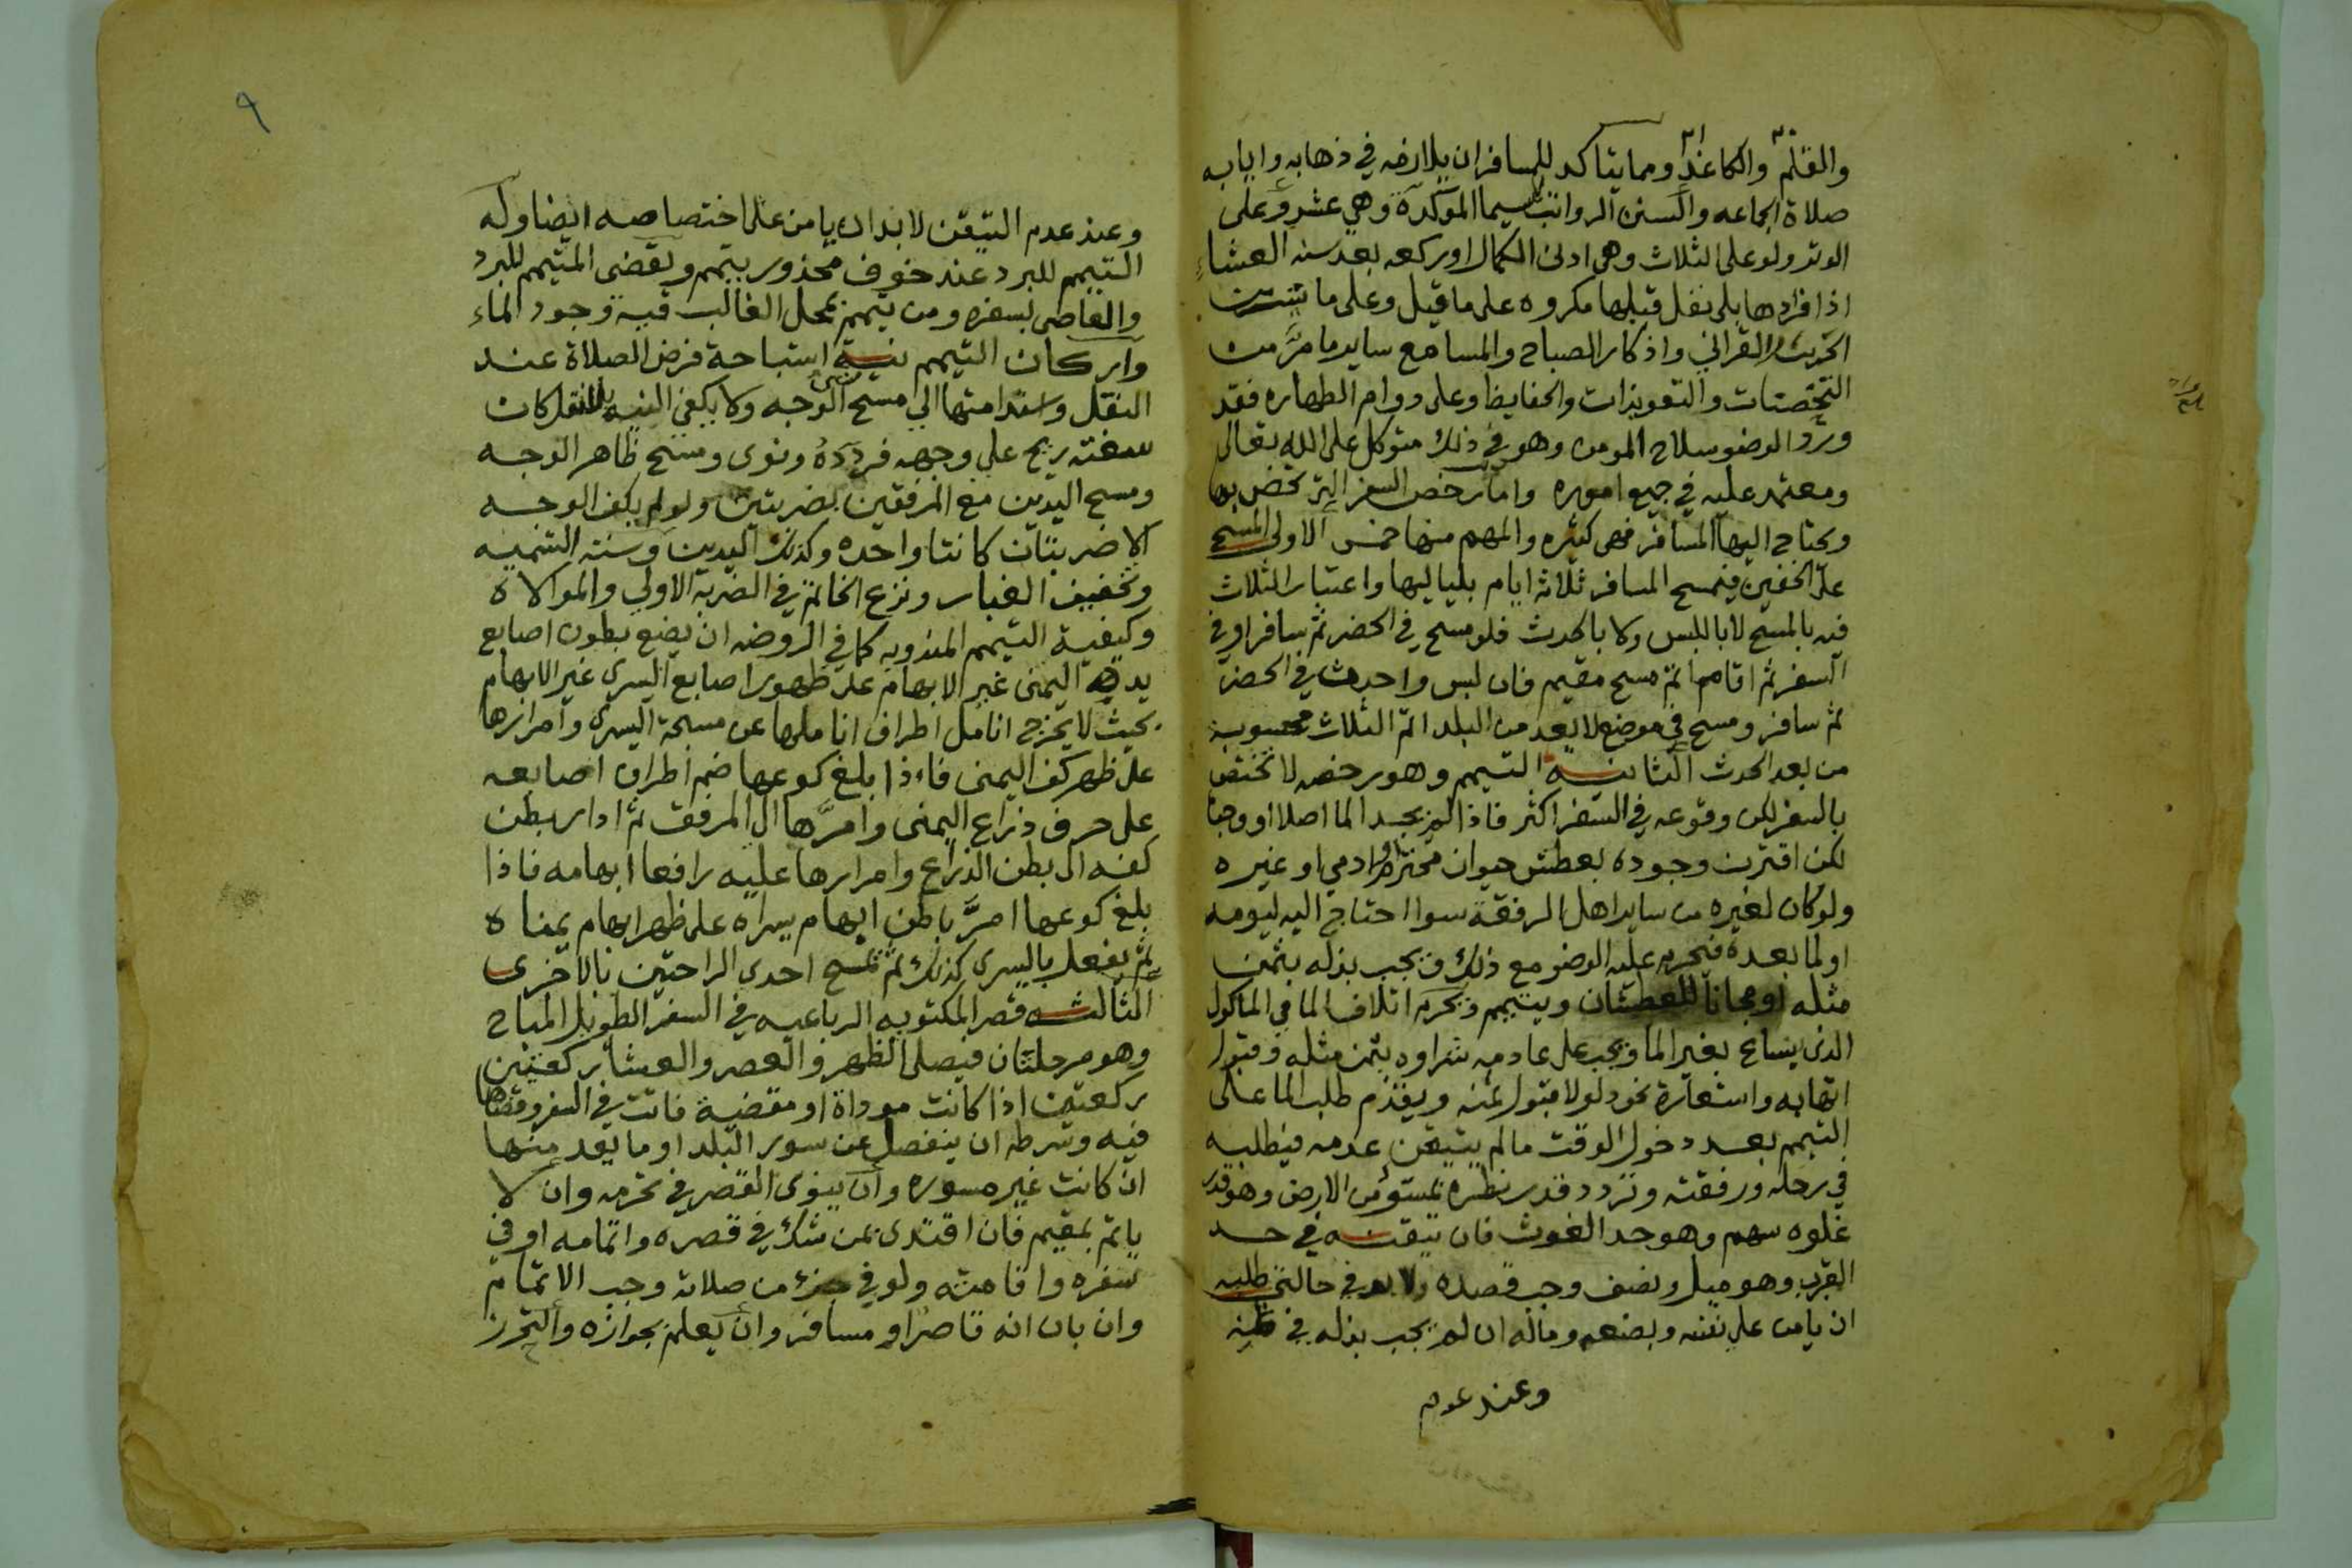 والقلم والكاغد ومما يتاكد للمسافر ان يلازمه في ذهابه وايابه
صلاة الجماعه والسنن الرواتب لاسيما الموكدة وهي عشر وعلى
الوتر ولو على الثلاث وهي ادنى الكمال او ركعه بعد سنه العشاء
اذ افرادها بلى نفل قبلها مكروه على ما قيل وعلى ما تيسر من
الحزب القراني واذكار الصباح والمسا مع ساير ما مر من
التحصنات والتعويذات والحفايظ وعلى دوام الطهاره فقد
ورد الوضو سلاح المومن وهو في ذلك متوكل على الله تعالى
ومعتمد عليه في جميع اموره واما رخص السفر التي تختص بها
ويحتاج اليها المسافر فهي كثيره والمهم منها خمس الاولى المسح
على الخفين فيمسح المسافر ثلاثه ايام بلياليها واعتبار الثلاث
فيه بالمسح لا باللبس ولا بالحدث فلو مسح في الحضر ثم سافر او في
السفر ثم اقام اتم مسح مقيم فان لبس واحدث في الحضر
ثم سافر ومسح في موضع لا يعد من البلد اتم الثلاث محسوبة
من بعد الحدث الثانيه التيمم وهو رخصه لا تختص
بالسفر لكن وقوعه في السفر اكثر فاذا لم يجد الما اصلا او وجد
لكن اقترن وجوده بعطش حيوان محترم ادمي او غيره
ولو كان لغيره من ساير اهل الرفقة سوا احتاج اليه ليومه
او لما بعده فيحرم عليه الوضو مع ذلك ويجب بذله بثمن
مثله او مجانا للعطشان ويتيمم ويحرم اتلاف الما في الماكول
الذي ينساغ بغير الما ويجب على عادمه شراوه بثمن مثله وقبول
اتهابه واستعارة نحو دلو لا قبول ثمنه ويقدم طلب الما على
التيمم بعد دخول الوقت ما لم يتيقن عدمه فيطلبه
في رحله ورفقته وتردد قدر نظره بمستو من الارض وهو قدر
غلوه سهم وهو حد الغوث فان تيقنه في حد
القرب وهو ميل ونصف وجب قصده ولا بد في حالتي طلبه
ان يامن على نفسه وبضعه وماله ان لم يجب بذله في
وعند عدم
٩
وعند عدم التيقن لا بد ان يامن على اختصاصه ايضا وله
التيمم للبرد عند خوف محذور بتيمم ويقضي المتيمم للبرد
والعاصي بسفره ومن تيمم بمحل الغالب فيه وجود الماء
واركان التيمم نية استباحة فرض الصلاة عند
النقل واستدامتها الى مسح شي الوجه ولا يكفي النيه بلا نقل كان
سفته ريح على وجهه فردده ونوى ومسح ظاهر الوجه
ومسح اليدين مع المرفقين بضربتين ولو لم يكف الوجه
الا ضربتان كانتا واحده وكذلك اليدين وسننه التسميه
وتخفيف الغبار ونزع الخاتم في الضربة الاولى والموالاة
وكيفية التيمم المندوبه كما في الروضه ان يضع بطون اصابع
يده اليمنى غير الابهام على ظهور اصابع اليسرى غير الابهام
بحيث لا يخرج انامل اطراف اناملها عن مسبحة اليسرى وامرارها
على ظهر كف اليمنى فاءذا بلغ كوعها ضم اطراف اصابعه
على حرف ذراع اليمنى وامرها الى المرفق ثم ادار بطن
كفه الى بطن الذراع وامرارها عليه رافعا ابهامه فاذا
بلغ كوعها امر باطن ابهام يسراه على ظهر ابهام يمناه
ثم يفعل باليسرى كذلك ثم يمسح احدى الراحتين بالاخرى
الثالثه قصر المكتوبه الرباعيه في السفر الطويل المباح
وهو مرحلتان فيصلي الظهر والعصر والعشا ركعتين
ركعتين اذا كانت موداة او مقضية فاتت في السفر وقضاها
فيه وشرطه ان ينفصل عن سور البلد او ما يعد منها
ان كانت غير مسوره وان ينوي القصر في تحرمه وان لا
ياتم بمقيم فان اقتدى بمن شك في قصره واتمامه او في
سفره واقامته ولو في جزء من صلاته وجب الاتمام
وان بان انه قاصرا ومسافر وان يعلم بجوازه والتحرز